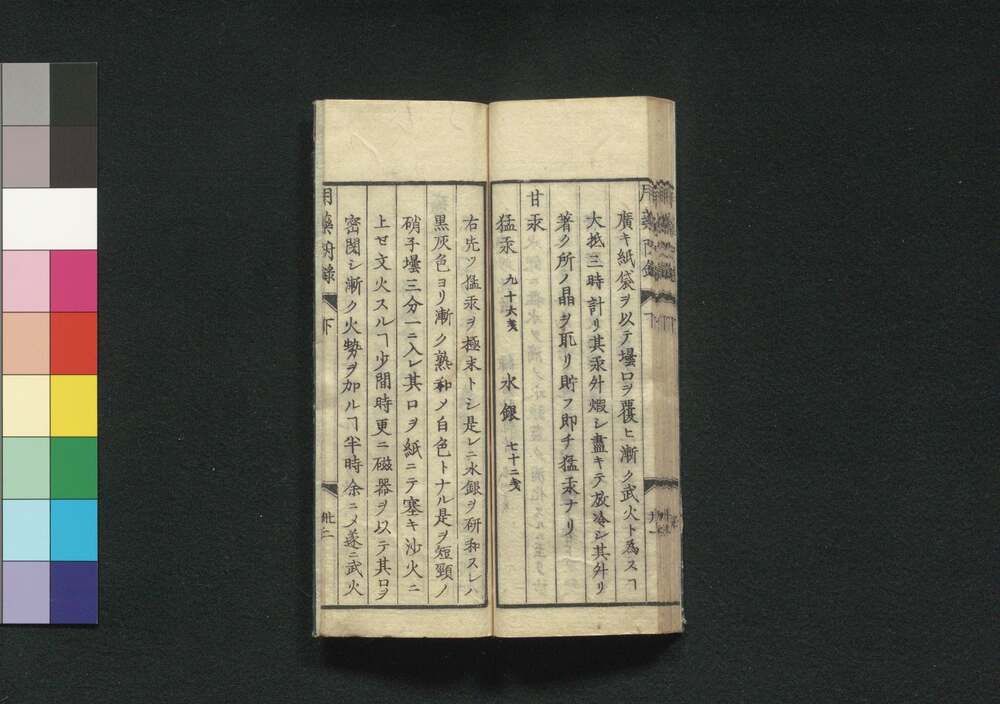 廣キ紙袋ヲ以テ壜口ヲ覆ヒ漸ク武火ト為スヿ
大抵三時計リ其汞外煆シ盡キテ放冷シ其外リ
著ク所ノ晶ヲ取リ貯フ即チ猛汞ナリ
甘汞
猛汞 九十六戔 水銀 七十二戔
右先ツ猛汞ヲ極末トシ是レニ水銀ヲ研和スレハ
黒灰色ヨリ漸ク熟和メ白色トナル是ヲ短頸ノ
硝子壜三分一ニ入レ其口ヲ紙ニテ塞キ沙火ニ
上セ文火スルヿ少間時更ニ磁器ヲ以テ其口ヲ
密閉シ漸ク火勢ヲ加ルヿ半時余ニメ遂ニ武火
用藥附録 下